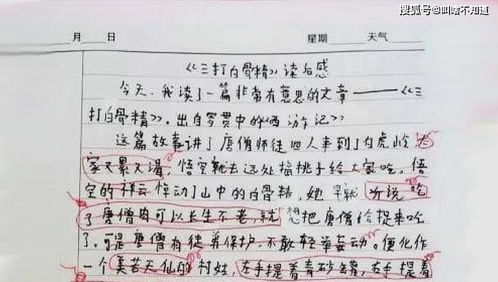 搜狐号@叫啥不知道
月 日 星期 天气
《三打白骨精》读后感
今天,我读了一篇非常有意思的文章——《三
打白骨精》,出自罗贯中的《西游记》
这篇故事讲了唐僧师徒四人来到了白虎岭,大
家又累又渴,悟空就去远处摘桃子给大家吃。悟
空的祥云惊动了山中的白骨精,她早就听说吃
了唐僧肉可以长生不老,就想把唐僧给捉来吃
了。可是唐僧有徒弟保护,不敢轻举妄动。便化作
一个美若天仙的村姑,左手提着青砂罐,右手提着